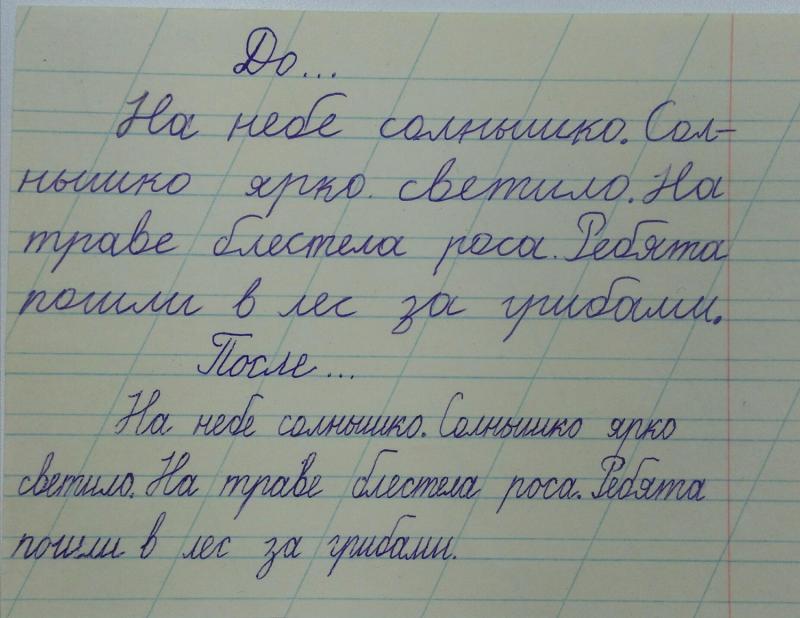 До...
На небе солнышко. Сол-
нышко ярко светило. На
траве блестела роса. Ребята
пошли в лес за грибами.
После...
На небе солнышко. Солнышко ярко
светило. На траве блестела роса. Ребята
пошли в лес за грибами.